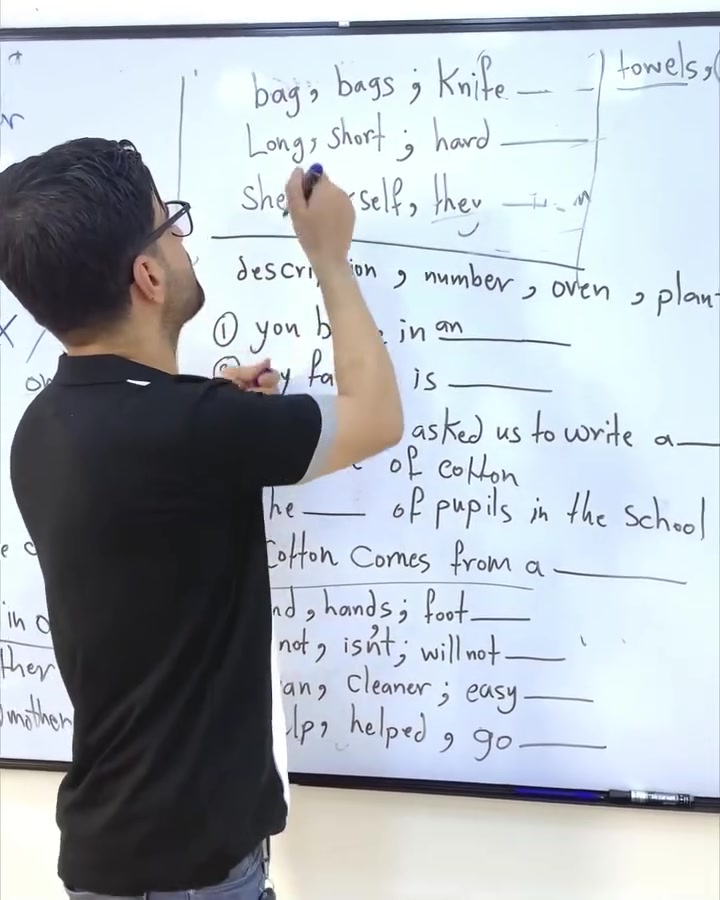 bag, bags; Knife ___ towels,
Long, short; hard ___
She self, they ___
description, number, oven, plan
① you in an ___
② is ___
asked us to write a ___
of cotton
he ___ of pupils in the School
Cotton Comes from a ___
nd, hands; foot ___
not, isn't; will not ___
an, Cleaner; easy ___
lp, helped, go ___
in
ther
mother